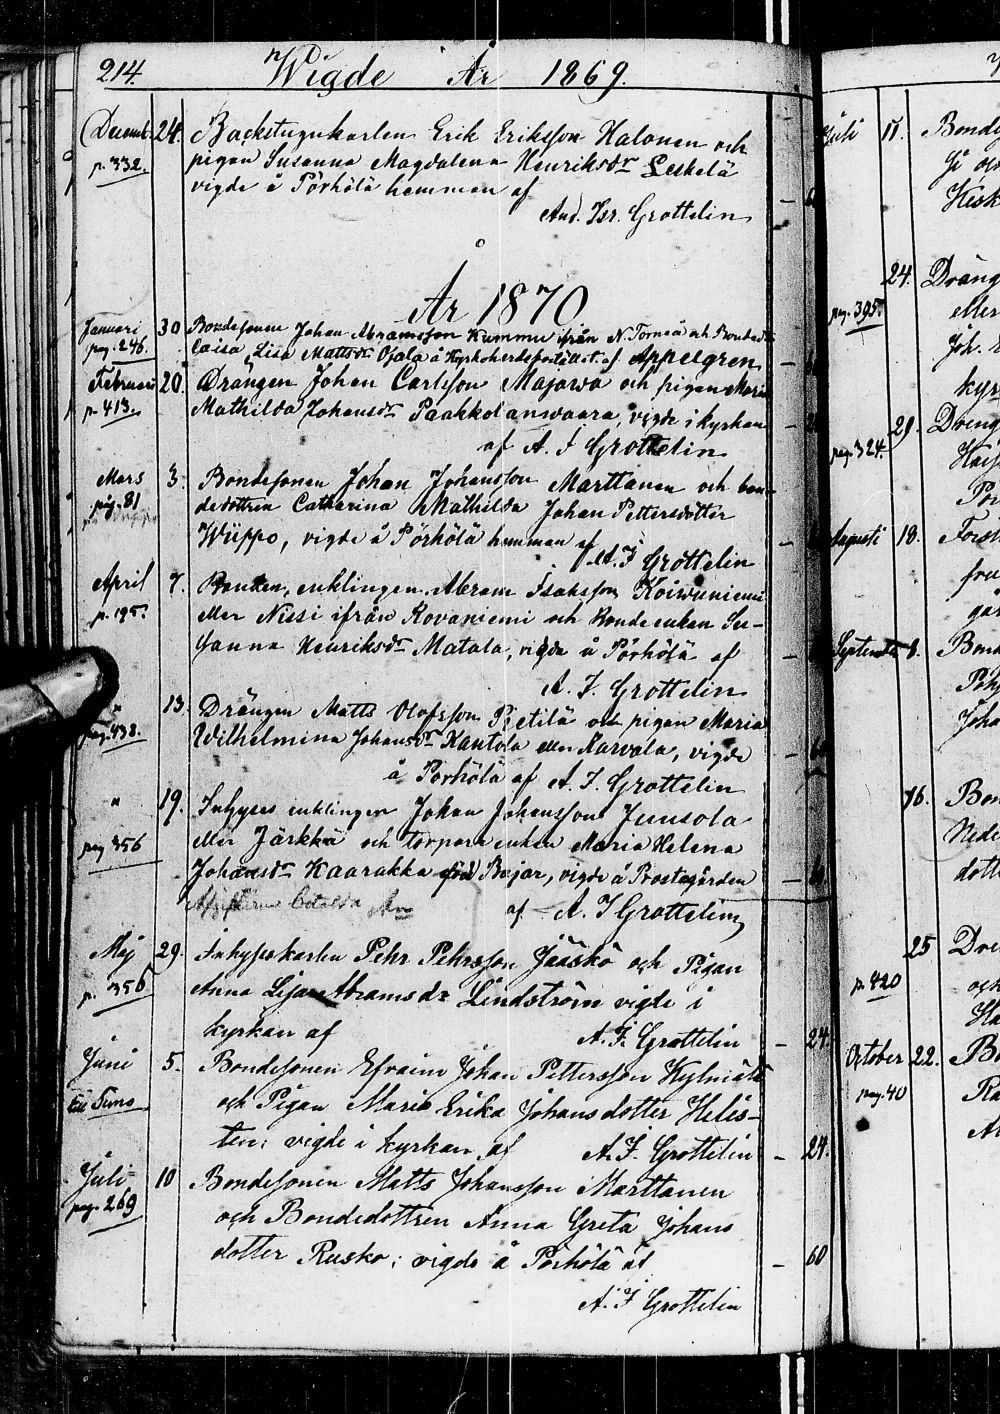 214. Wigde År 1869.
Decemb. 24. Backstugukarlen Erik Eriksson Halonen och
p. 332. pigan Susanna Magdalena Henriksdr Leskelä
vigde å Pörhölä hemman af
And. Isr. Grottelin
År 1870
Januari 30 Bondesonen Johan Abramsson Kummu ifrån N. Torneå och
pag. 246. Caisa Lisa Mattsdr Ojala å Kyrkoherdsbostället af Appelgren
Februari 20. Drängen Johan Carlsson Majawa och pigan Maria
p. 413. Mathilda Johansdr Paakkolanwaara, vigde i kyrkan
af A. I Grottelin
Mars 3. Bondesonen Johan Johansson Marttanen och bon-
pag. 81 dedottren Catharina Mathilda Johan Pettersdotter
Wiippo, vigde å Pörhölä hemman af
A. I Grottelin
April 7. Bonden, enklingen Abram Isaksson Koivuniemi
p. 195. eller Nissi ifrån Rovaniemi och Bonde enkan Su-
sanna Henriksdr Matala, vigde å Pörhölä af
A. I. Grottelin
" 13. Drängen Matts Olofsson Pietilä och pigan Maria
pag. 438. Wilhelmina Johansdr Kantola eller Karvala, vigde
å Pörhölä af A. I. Grottelin
" 19. Inhyses enklingen Johan Johansson Juusola
pag 356 eller Järkkä och torpare enkan Maria Helena
Johansdr Kaarakka född Bajar, vigde å Prostegården
af A. I Grottelin
Maj 29. Inhyseskarlen Pehr Pehrsson Jääskö och Pigan
p. 356 Anna Lisa Abramsdr Lindström vigde i
kyrkan af A. I. Grottelin - 24.
Juni 5. Bondesonen Efraim Johan Pettersson
till och Pigan Maria Erika Johansdotter Hilis-
ten; vigde i kyrkan af A. I. Grottelin - 24.
Juli 10 Bondesonen Matts Johansson Marttanen
pag. 269 och Bondedottren Anna Greta Johans
dotter Rusko; vigde å Pörhölä af - 60
A. I Grottelin
Juli 11. Bonde
24. Dräng
pag. 395. eller
Joh.
29.
pag. 324.
Augusti 18.
Septemb 8. Bond
Joha
16. Bon
Nede
dott
25 Dre
p. 420 och
Ha
October 22. Bo
pag. 40 Ra